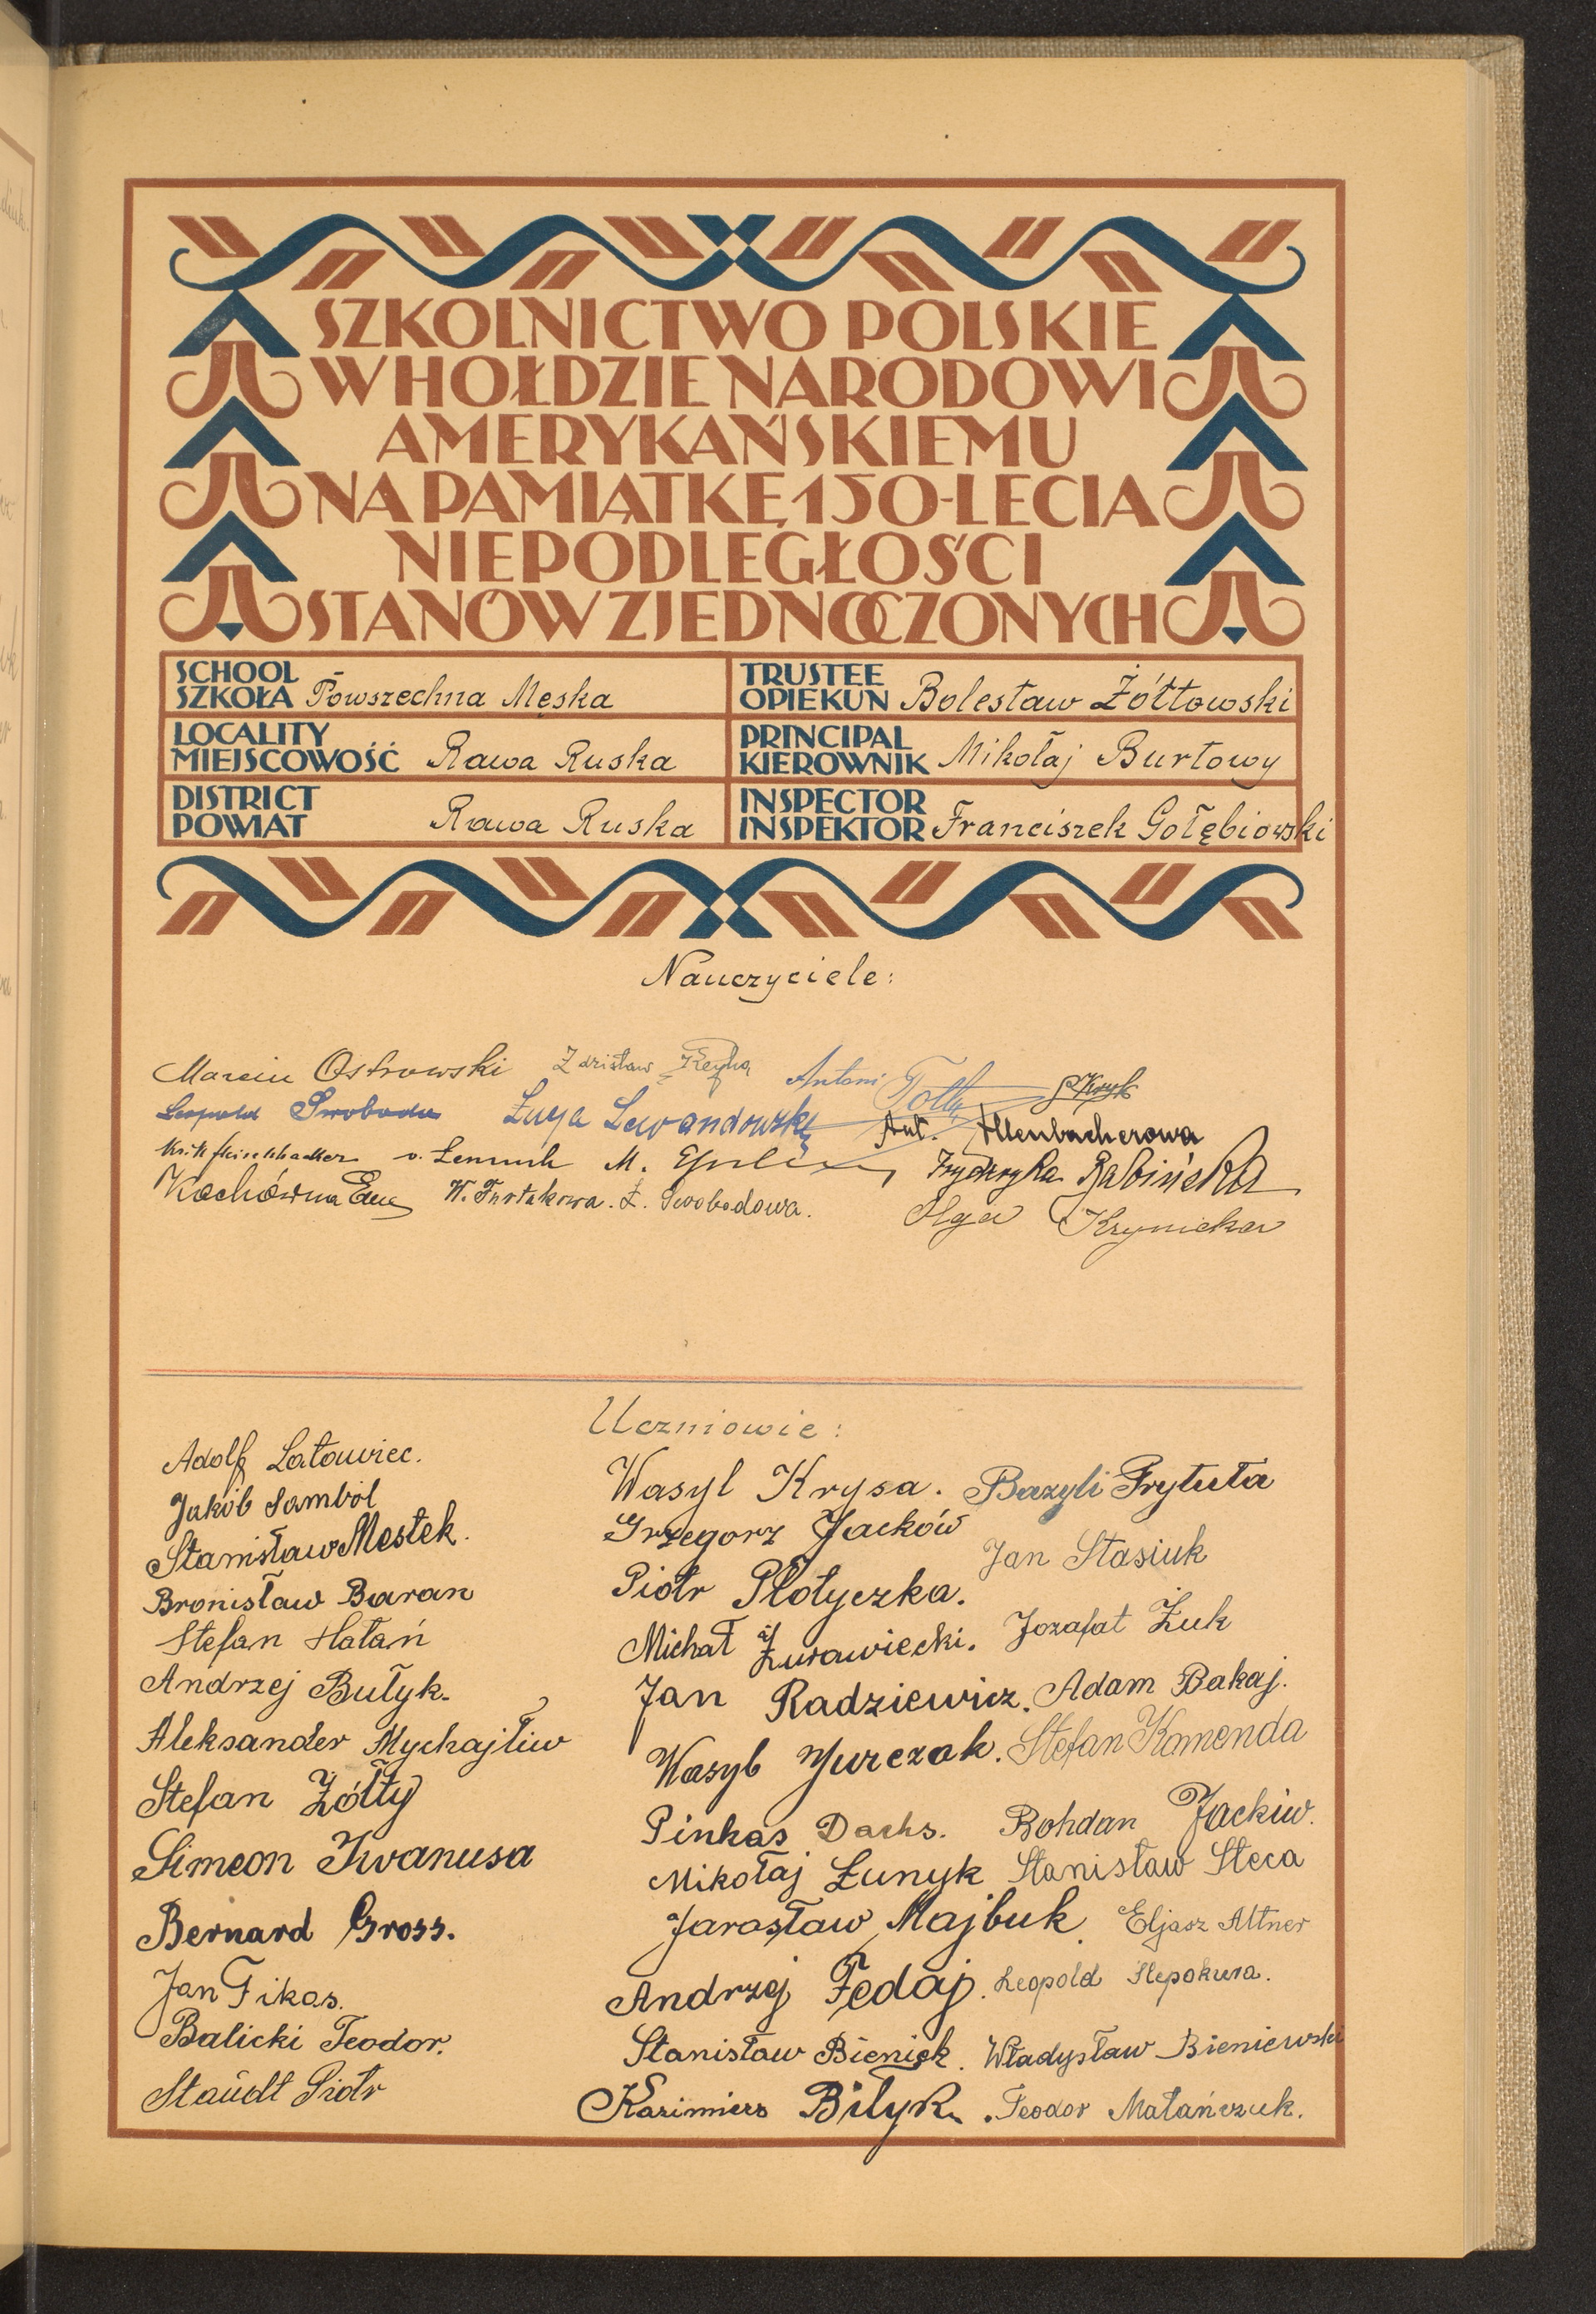 SZKOLNICTWO POLSKIE
W HOŁDZIE NARODOWI
AMERYKAŃSKIEMU
NA PAMIĄTKĘ 150-LECIA
NIEPODLEGŁOŚCI
STANÓW ZJEDNOCZONYCH
SCHOOL
SZKOŁA Powszechna Męska
TRUSTEE
OPIEKUN Bolesław Żółtowski
LOCALITY
MIEJSCOWOŚĆ Rawa Ruska
PRINCIPAL
KIEROWNIK Mikołaj Burtowy
DISTRICT
POWIAT Rawa Ruska
INSPECTOR
INSPEKTOR Franciszek Gołębiowski
Nauczyciele:
Marcin Ostrowski Zdzisław Antoni
Leopold Swoboda Łucja Lewandowska Ant. Altenbacherowa
M. Fryderyka Rabińska
Kochówna Ewa W. Furtakowa. Ł. Swobodowa.
Olga Krynicka
Uczniowie:
Adolf Latowiec.
Jakób Sambol
Stanisław Mestek.
Bronisław Baran
Stefan Hałań
Andrzej Bułyk.
Aleksander Mychajliw
Stefan Żółty
Simeon Iwanusa
Bernard Gross.
Jan Fikas.
Balicki Teodor.
Staudt Piotr
Wasyl Krysa. Bazyli Prytuła
Grzegorz Jacków
Jan Stasiuk
Piotr Płotyczka.
Michał Żurawiecki. Jozafat Żuk
Jan Radziewicz. Adam Bakaj.
Wasyl Jurczak. Stefan Komenda
Pinkas Dachs. Bohdan Jackiw.
Mikołaj Łunyk Stanisław Steca
Jarosław Majbuk. Eljasz Altner
Andrzej Fedaj. Leopold Slepokura.
Stanisław Bieniek. Władysław Bieniewski
Kazimierz Bilyk. Teodor Matańczuk.